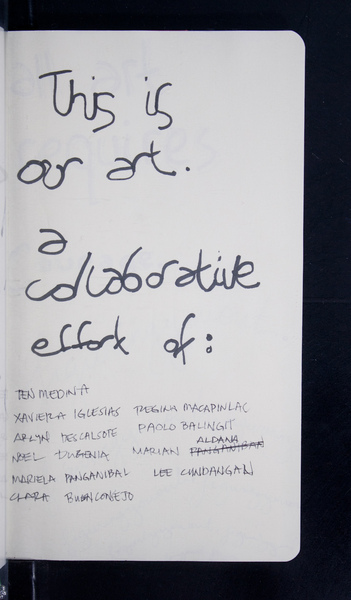 This is
our art.
a
collaborative
effort of:
TEN MEDINA
XAVIERA IGLESIAS REGINA MACAPINLAC
ARLYN DESCALSOTE PAOLO BALINGIT
ALDANA
NOEL DUBENIA MARIAN PANGANIBAN
MARIELA PANGANIBAL LEE CUNDANGAN
CLARA BUENCONEJO